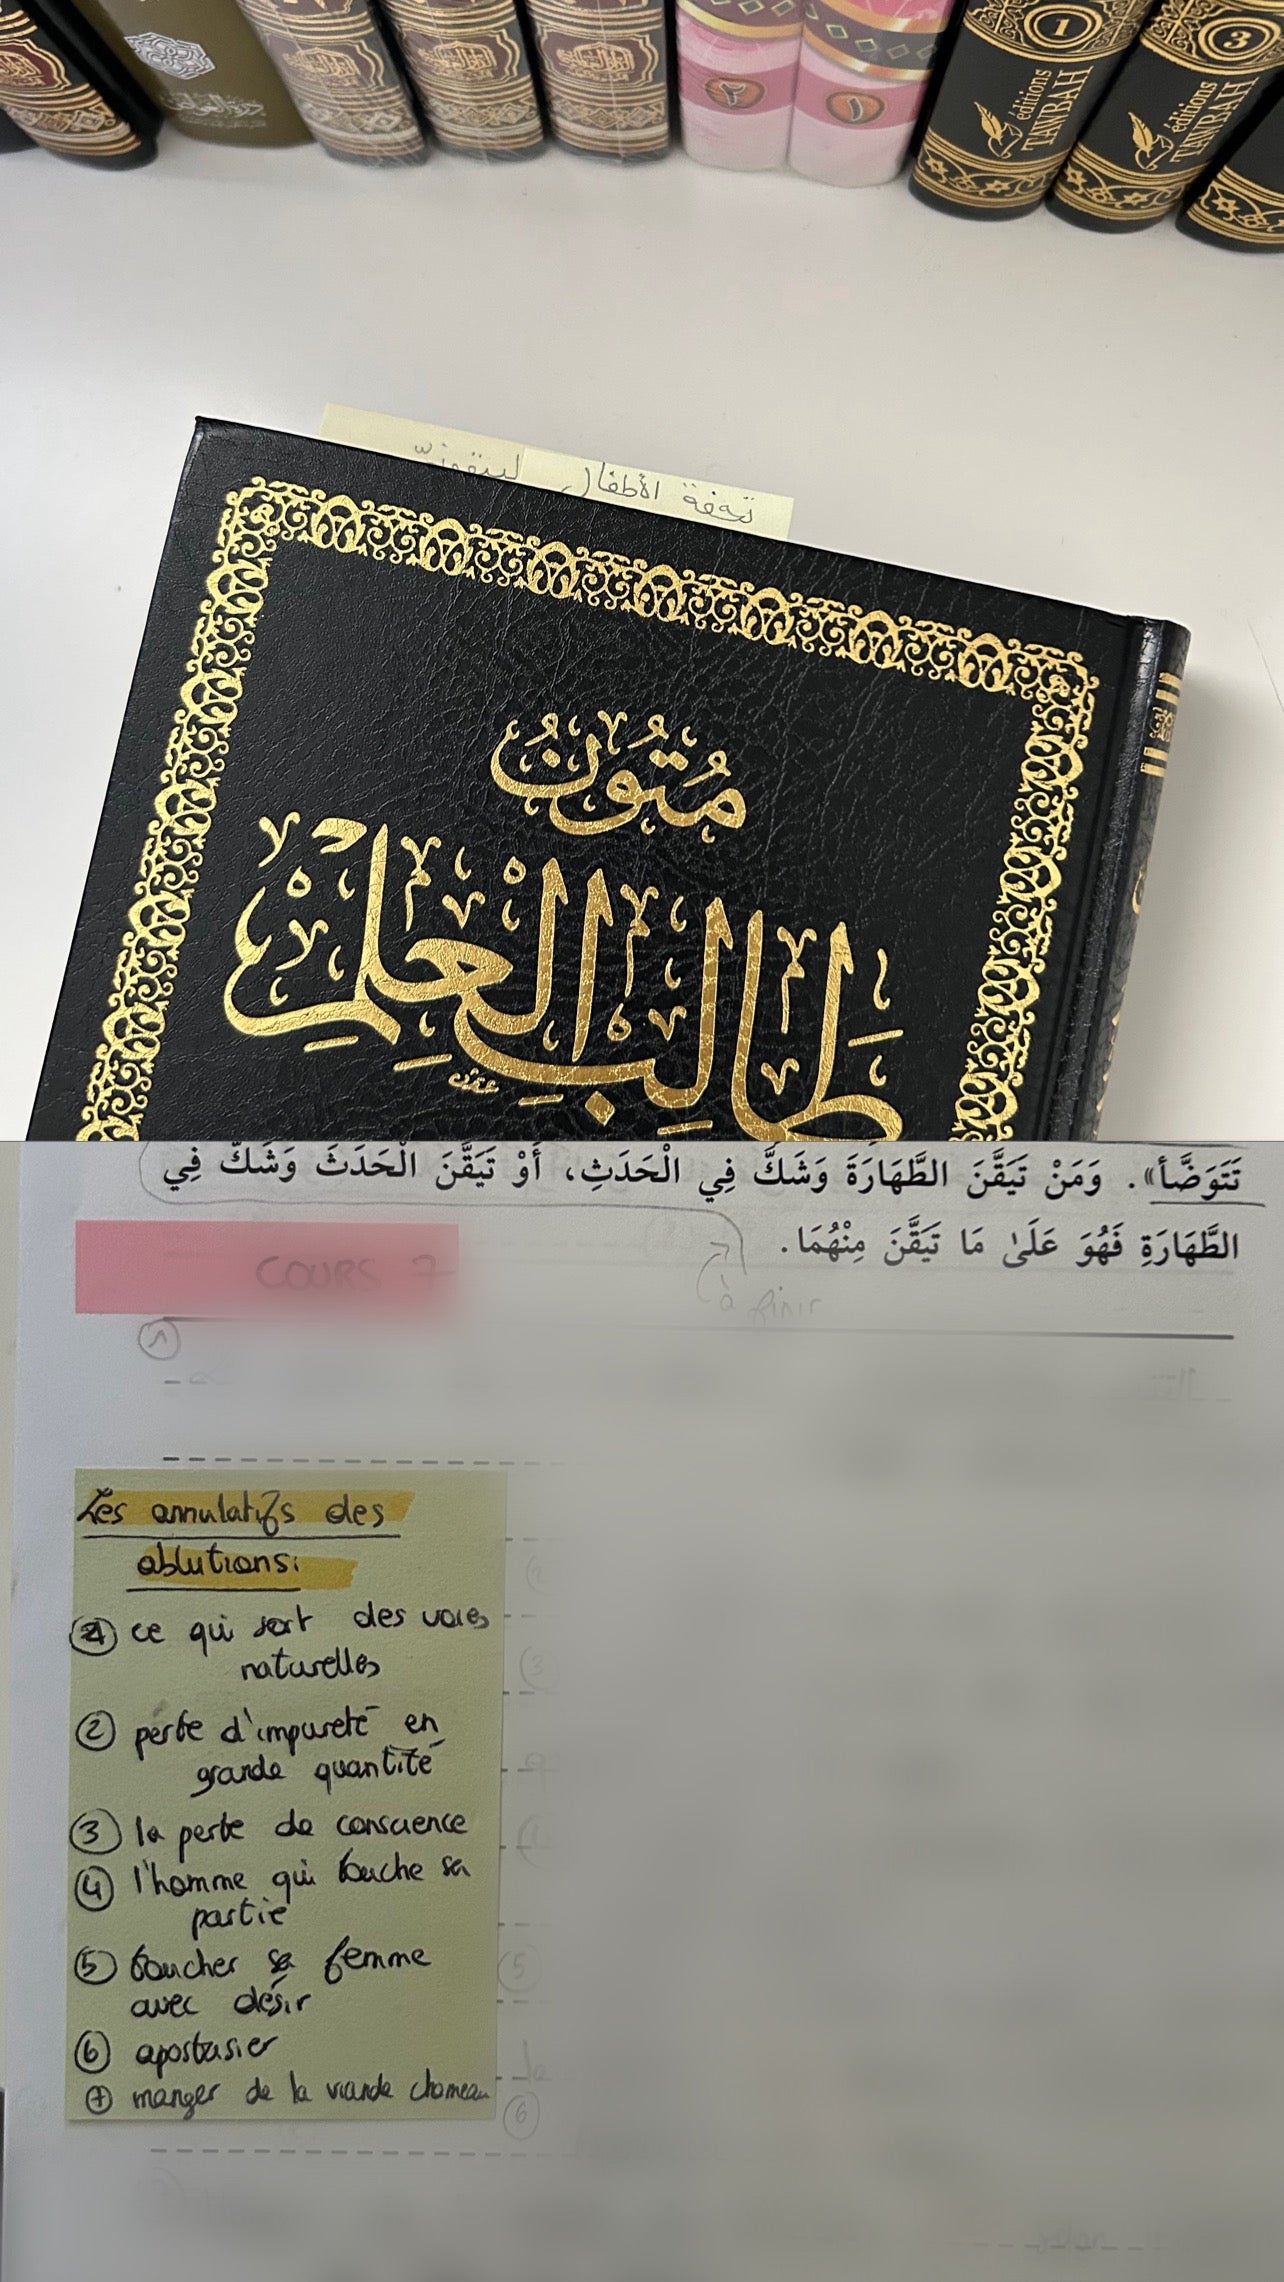 1
éditions
TAWBAH
3
éditions
TAWBAH
٢
١
تحفة الأطفال
مُتُونُ
طَالِبِ الْعِلْمِ
تَتَوَضَّأ». وَمَنْ تَيَقَّنَ الطَّهَارَةَ وَشَكَّ فِي الْحَدَثِ، أَوْ تَيَقَّنَ الْحَدَثَ وَشَكَّ فِي
الطَّهَارَةِ فَهُوَ عَلَىٰ مَا تَيَقَّنَ مِنْهُمَا.
COURS 7
à finir
1
Les annulatifs des
ablutions:
1 ce qui sort des voies
naturelles
2 perte d'impureté en
grande quantité
3 la perte de conscience
4 l'homme qui touche sa
partie
5 toucher sa femme
avec désir
6 apostasier
+ manger de la viande chameau
3
5
6